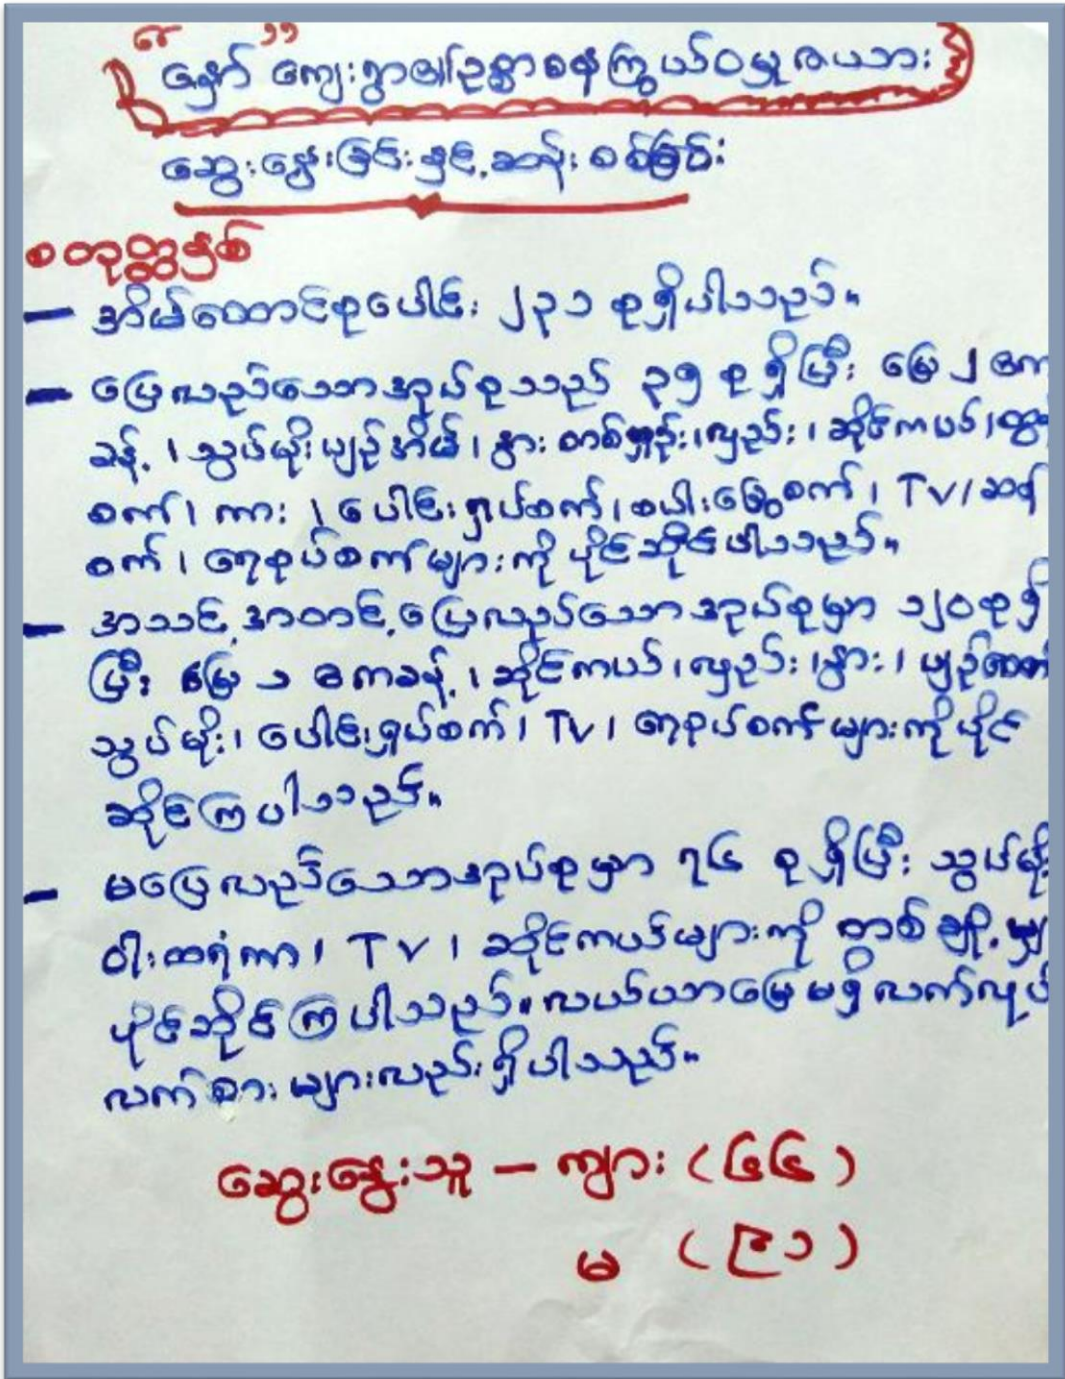 "နှော" ကျေးရွာ၏ဥစ္စာဓနကြွယ်ဝမှုဇယား
ဆွေးနွေးခြင်းနှင့်ဆန်းစစ်ခြင်း
စတုတ္ထနှစ်
- အိမ်ထောင်စုပေါင်း ၂၃၁ စုရှိပါသည်။
- ပြေလည်သောအုပ်စုသည် ၃၅ စုရှိပြီး မြေ ၂ ဧက
ခန့်၊ သွပ်မိုးပျဉ်အိမ်၊ နွား တစ်ရှဉ်း၊လှည်း၊ ဆိုင်ကယ်၊
စက်၊ ကား၊ ပေါင်းရှပ်စက်၊စပါးခြွေစက်၊ TV၊ဆန်
စက်၊ ရေစုပ်စက်များကို ပိုင်ဆိုင်ပါသည်။
- အသင့်အတင့်ပြေလည်သောအုပ်စုမှာ ၁၂၀စုရှိ
ပြီး မြေ ၁ ဧကခန့်၊ ဆိုင်ကယ်၊လှည်း၊နွား၊ ပျဉ်ထောင်
သွပ်မိုး၊ ပေါင်းရှပ်စက်၊ TV၊ ရေစုပ်စက်များကိုပိုင်
ဆိုင်ကြပါသည်။
- မပြေလည်သောအုပ်စုမှာ ၇၆ စုရှိပြီး သွပ်မိုး
ဝါးထရံကာ၊ TV၊ ဆိုင်ကယ်များကို တစ်ချို့မျှ
ပိုင်ဆိုင်ကြပါသည်။လယ်ယာမြေမရှိလက်လုပ်
လက်စားများလည်းရှိပါသည်။
ဆွေးနွေးသူ - ကျား (၄၄)
မ (၉၁)